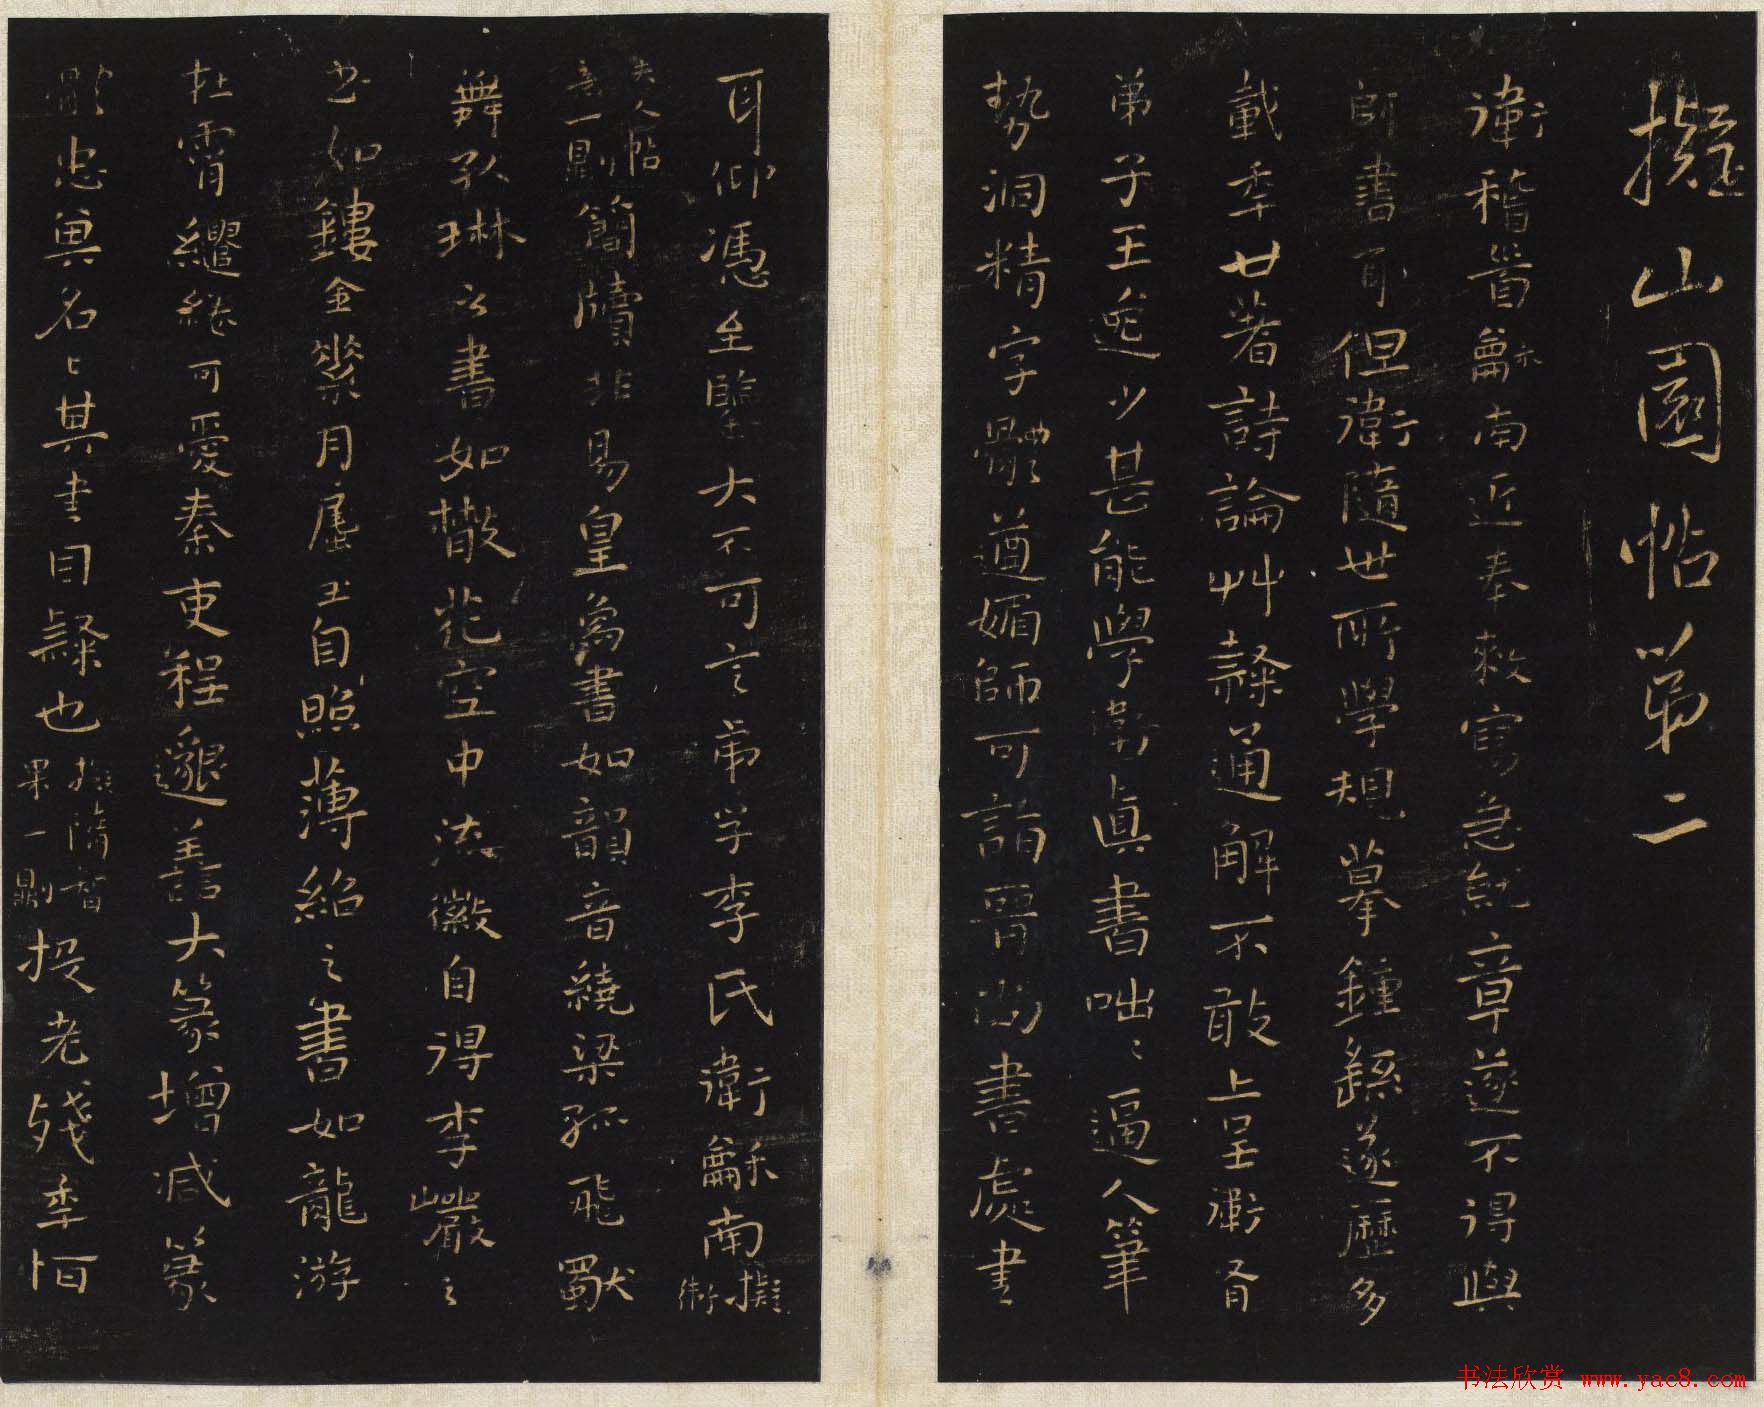 擬山園帖第二
衛稽首龢南近奉敕寫急就章遂不得與
師書耳但衛隨世所學規摹鍾繇遂歷多
載年廿著詩論艸隸通解不敢上呈衛有
弟子王逸少甚能學衛真書咄咄逼人筆
勢洞精字體遒媚師可詣晉尚書處書
耳仰憑至鑒大不可言弟子李氏衛龢南 擬衛
夫人帖
意一則 簡牘非易皇象書如韻音繞梁孤飛獸
舞孔琳之書如散花空中流徽自得李巖之
書如鏤金素月屈玉自照薄紹之書如龍游
在霄繾綣可愛秦吏程邈善大篆增減篆
體忠與名之其書曰隸也 擬隋智
果一則 投老殘年恒
书法欣赏 www.yac8.com